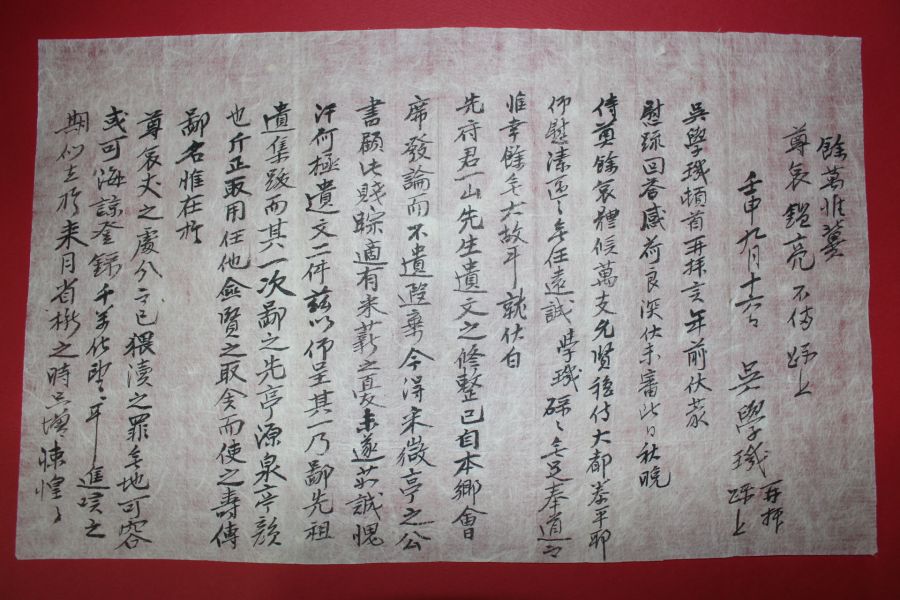 吳學珹頓首再拜言年前伏蒙
慰疏回答感荷良深伏未審此日秋晚
侍奠餘哀體候萬支允賢穩侍大都泰平耶
仰慰溱區〻無任遠誠 學珹碌〻無足奉道而
惟幸餘無大故耳就伏白
先府君一山先生遺文之修整已自本鄉會
席發論而不遺遐棄今得采微亭之公
書顧此賤蹤適有采薪之憂未遂如誠愧
汗何極遺文二件茲以仰呈其一乃鄙先祖
遺集跋而其一次鄙之先亭源泉亭韻
也斤正取用任他僉賢之取舍而使之壽傳
鄙名惟在於
尊哀丈之處分而已猥瀆之罪無地可容
或可海諒登錄千萬伏望耳進候之
期似在於來月省楸之時只增悚惶〻
餘萬惟冀
尊哀鑑亮 不備 疏上
壬申九月十六日 吳學珹 再拜
疏上